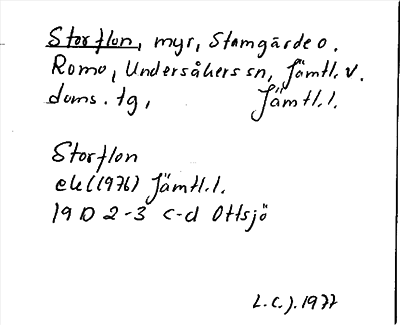 Storflon, myr, Stamgärde o.
Romo, Undersåkers sn, Jämtl. v.
doms. tg, Jämtl.l.
Storflon
ek (1976) Jämtl.l.
19 D 2-3 c-d Ottsjö
L.C.J. 1977